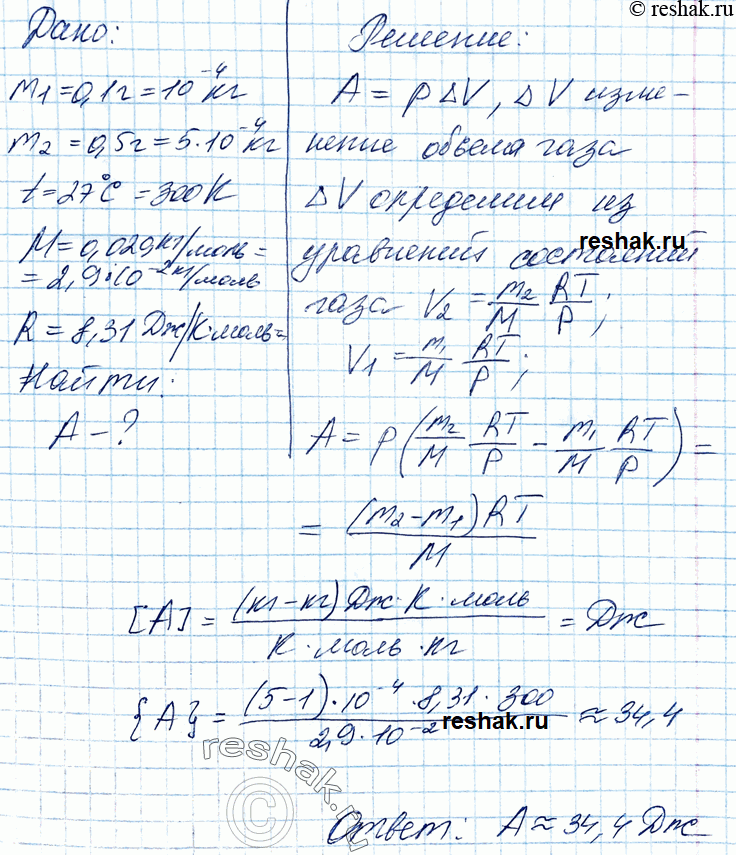 © reshak.ru
Дано:
m₁ = 0,1г = 10⁻⁴ кг
m₂ = 0,5г = 5·10⁻⁴ кг
t = 27°C = 300K
M = 0,029 кг/моль =
= 2,9·10⁻² кг/моль
R = 8,31 Дж/К·моль =
Найти:
A – ?
Решение:
A = pΔV, ΔV изме-
нение объема газа
ΔV определим из
reshak.ru
уравнений состояний
газа V₂ = m₂/M RT/P;
V₁ = m₁/M RT/P;
A = p(m₂/M RT/P − m₁/M RT/P) =
= (m₂ − m₁)RT/M
[A] = (кг − кг) Дж·К·моль / К·моль·кг = Дж
{A} = (5−1)·10⁻⁴·8,31·300 / 2,9·10⁻² ≈ 34,4
reshak.ru
reshak.ru
©
Ответ: A ≈ 34,4 Дж